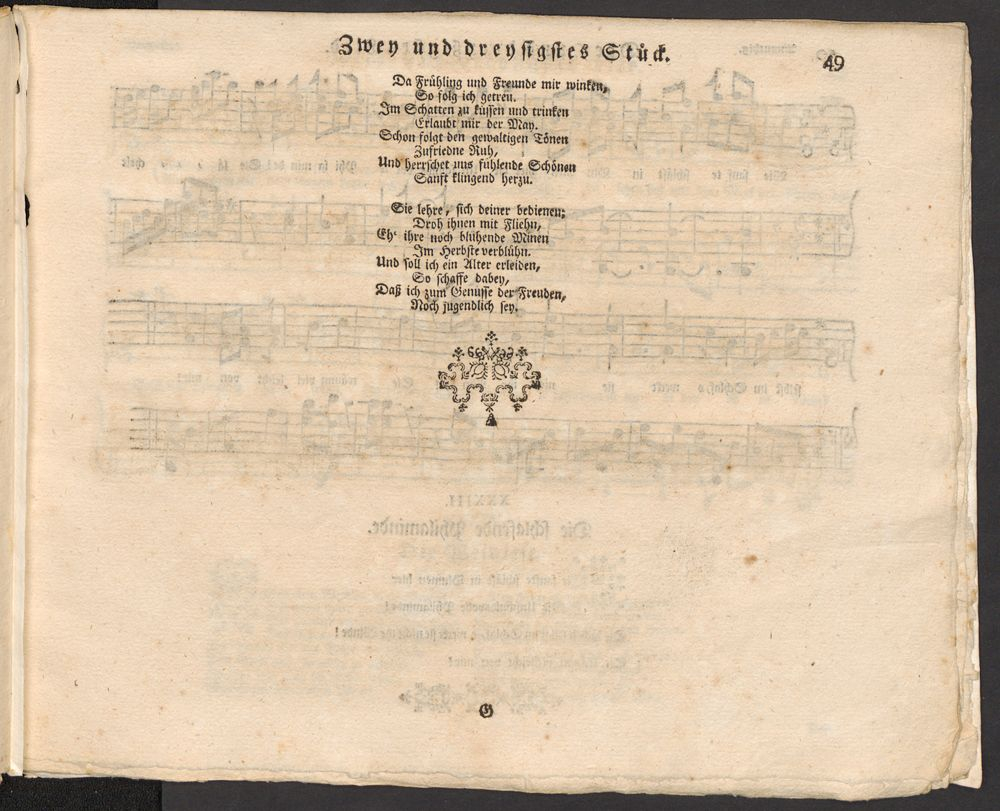 Zwey und dreysigstes Stück.
49
Da Frühling und Freunde mir winken,
So folg ich getreu.
Im Schatten zu küssen und trinken
Erlaubt mir der May.
Schon folgt den gewaltigen Tönen
Zufriedne Ruh,
Und herrschet uns fühlende Schönen
Sanft klingend herzu.
Sie lehre, sich deiner bedienen;
Droh ihnen mit Fliehn,
Eh' ihre noch blühende Minen
Im Herbste verblühn.
Und soll ich ein Alter erleiden,
So schaffe dabey,
Daß ich zum Genusse der Freuden,
Noch jugendlich sey.
G
XXXIII.
Die schlafende Philaminde.